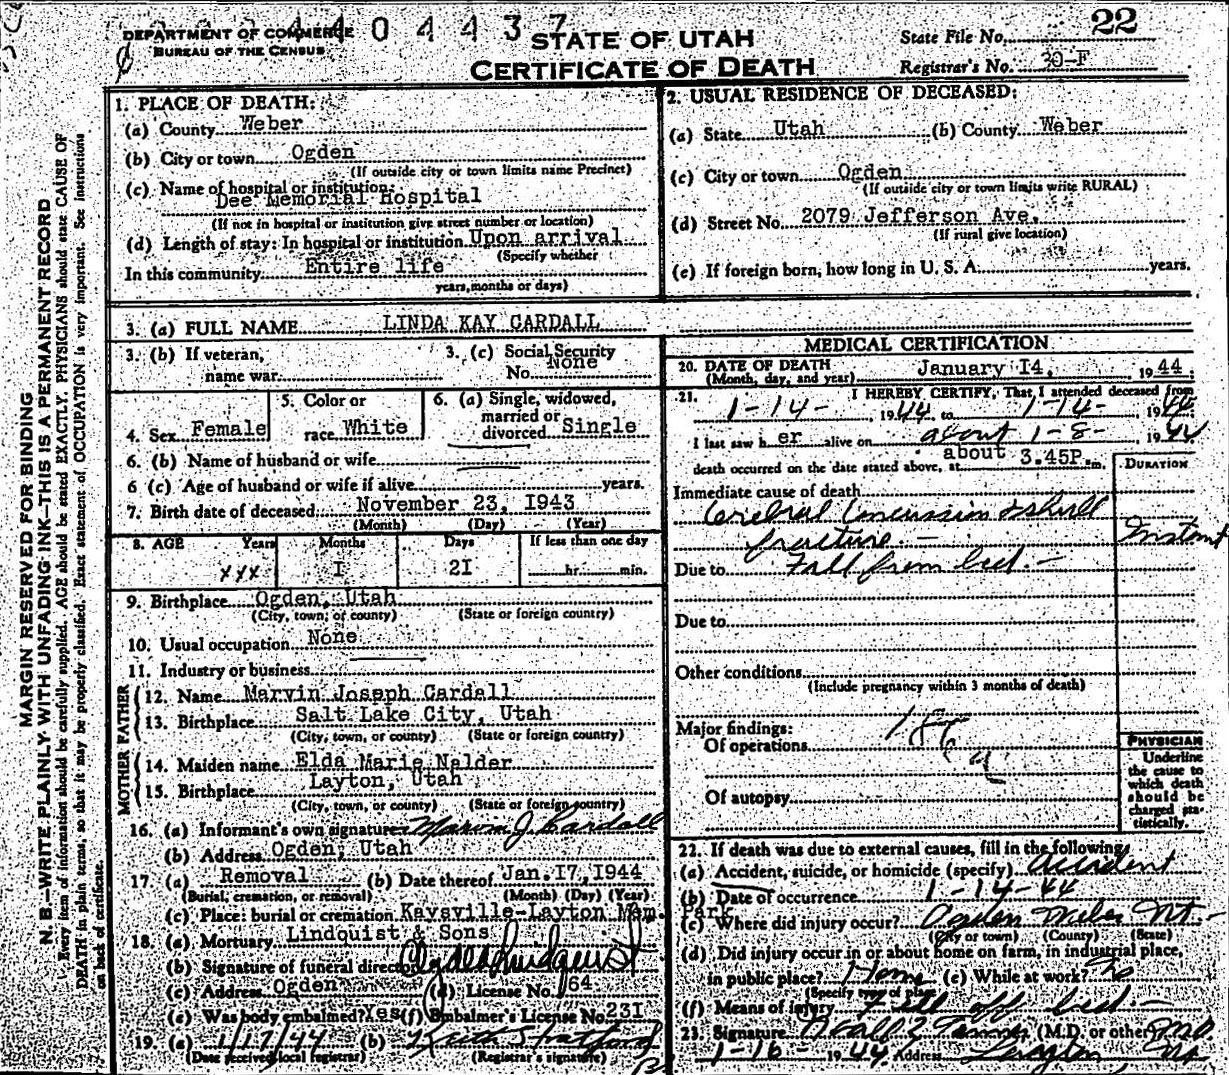 0 4 4 3 7
DEPARTMENT OF COMMERCE
BUREAU OF THE CENSUS
STATE OF UTAH
CERTIFICATE OF DEATH
State File No. 22
Registrar's No. 30-F
MARGIN RESERVED FOR BINDING
N. B.—WRITE PLAINLY WITH UNFADING INK—THIS IS A PERMANENT RECORD
Every item of information should be carefully supplied. AGE should be stated EXACTLY. PHYSICIANS should state CAUSE OF
DEATH in plain terms, so that it may be properly classified. Exact statement of OCCUPATION is very important. See instructions
on back of certificate.
1. PLACE OF DEATH:
(a) County Weber
(b) City or town Ogden
(If outside city or town limits name Precinct)
(c) Name of hospital or institution:
Dee Memorial Hospital
(If not in hospital or institution give street number or location)
(d) Length of stay: In hospital or institution Upon arrival
(Specify whether
In this community Entire life
years, months or days)
2. USUAL RESIDENCE OF DECEASED:
(a) State Utah (b) County Weber
(c) City or town Ogden
(If outside city or town limits write RURAL)
(d) Street No. 2079 Jefferson Ave.
(If rural give location)
(e) If foreign born, how long in U. S. A. years.
3. (a) FULL NAME LINDA KAY CARDALL
3. (b) If veteran,
name war
3. (c) Social Security
No. None
4. Sex Female
5. Color or
race White
6. (a) Single, widowed,
married or
divorced Single
6. (b) Name of husband or wife
6 (c) Age of husband or wife if alive years.
7. Birth date of deceased November 23, 1943
(Month) (Day) (Year)
8. AGE Years Months Days If less than one day
xxx I 2I hr. min.
9. Birthplace Ogden, Utah
(City, town, or county) (State or foreign country)
10. Usual occupation None
11. Industry or business
FATHER
12. Name Marvin Joseph Cardall
13. Birthplace Salt Lake City, Utah
(City, town, or county) (State or foreign country)
MOTHER
14. Maiden name Elda Marie Nalder
15. Birthplace Layton, Utah
(City, town, or county) (State or foreign country)
16. (a) Informant's own signature Marvin J. Cardall
(b) Address Ogden, Utah
17. (a) Removal (b) Date thereof Jan. I7, I944
(Burial, cremation, or removal) (Month) (Day) (Year)
(c) Place: burial or cremation Kaysville-Layton Mem. Park
18. (a) Mortuary Lindquist & Sons
(b) Signature of funeral director
(c) Address Ogden (d) License No. 64
(e) Was body embalmed? Yes (f) Embalmer's License No. 23I
19. (a) 1/17/44 (b)
(Date received local registrar) (Registrar's signature)
MEDICAL CERTIFICATION
20. DATE OF DEATH
(Month, day, and year) January I4, 1944.
21. I HEREBY CERTIFY, That I attended deceased from
1-14- 1944 to 1-14-, 1944
I last saw her alive on about 1-8- 1944
death occurred on the date stated above, at about 3.45P. m.
DURATION
Immediate cause of death
Cerebral Concussion & skull
fracture.— Instant
Due to Fall from bed.—
Due to
Other conditions
(Include pregnancy within 3 months of death)
Major findings:
Of operations
Of autopsy
PHYSICIAN
Underline
the cause to
which death
should be
charged sta-
tistically.
22. If death was due to external causes, fill in the following
(a) Accident, suicide, or homicide (specify) Accident
(b) Date of occurrence 1-14-44
(c) Where did injury occur? Ogden Weber Ut.
(City or town) (County) (State)
(d) Did injury occur in or about home on farm, in industrial place,
in public place? Home (e) While at work? no
(Specify type of place)
(f) Means of injury Fell off bed—
23. Signature (M.D. or other) MD
1-16- 1944 Address Layton Ut